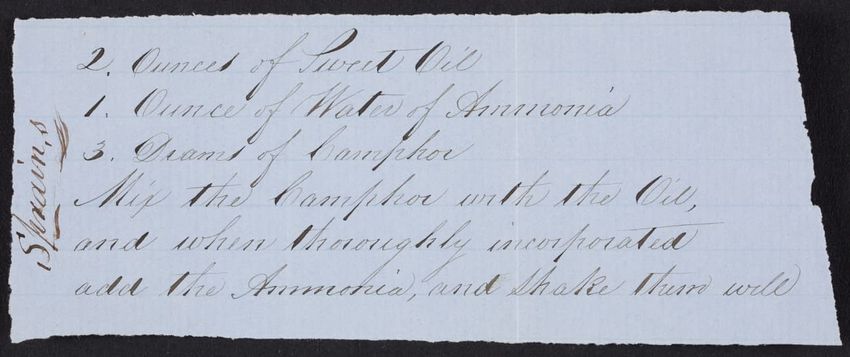 2. Ounces of Sweet Oil
1. Ounce of Water of Ammonia
3. Drams of Camphor
Mix the Camphor with the Oil,
and when thoroughly incorporated
add the Ammonia, and shake them well
Sprain,s